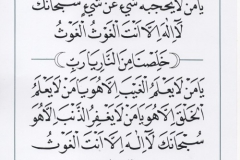 يا من لا يحجبه شيء عن شيء سبحانك
لا إله إلا أنت الغوث الغوث
خلصنا من النار يا رب
يا من لا يعلم الغيب إلا هو يا من لا يعلم
الخلق إلا هو يا من لا يغفر الذنب إلا هو
سبحانك لا إله إلا أنت الغوث